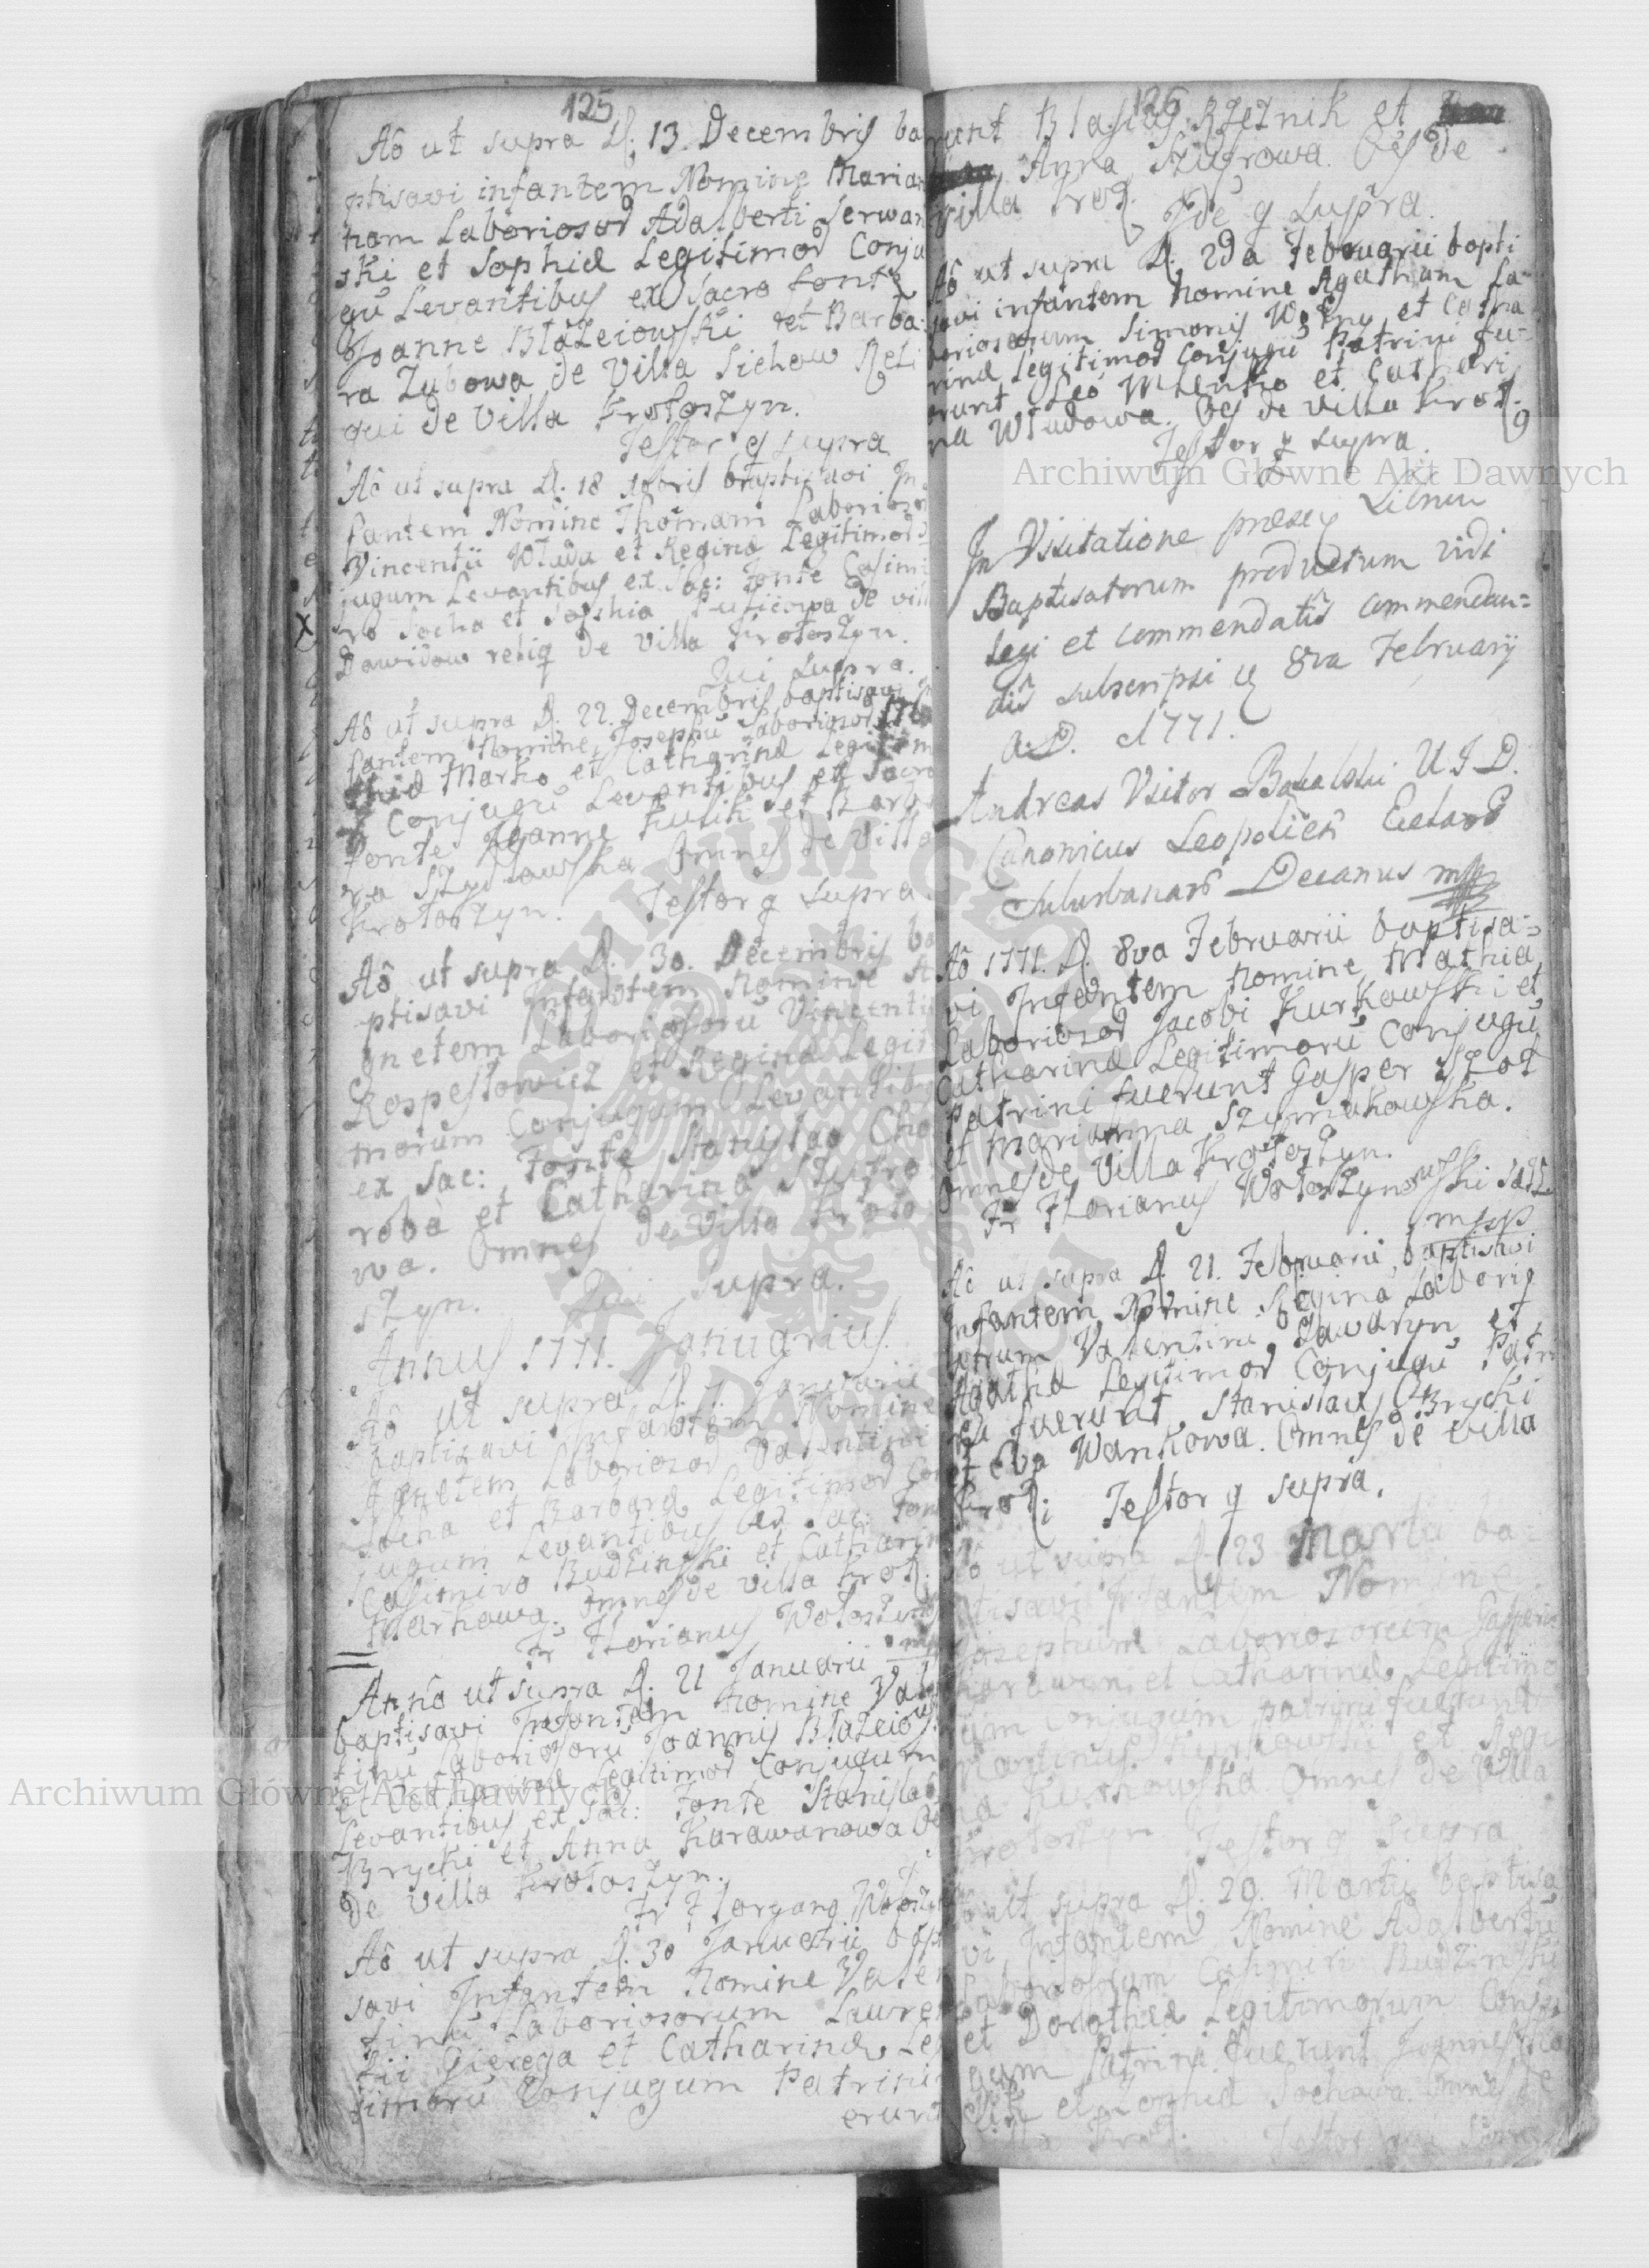 125
Aô ut supra D. 13 Decembris ba
ptisavi infantem Nomine Marian
nam Laboriosoꝝ Adalberti Serwan
ski et Sophiæ Legitimoꝝ Conju
gũ Levantibus ex Sacro fonte
Joanne Błazeiowski et Barba
ra Zubowa de Villa Sichow Reli
qui de Villa Krotoszyn.
Testor q supra
Aô ut supra D. 18 Xbris baptisavi In
fantem Nomine Thomam Laborioso
Vincentii Włuda et Regina Legitimoꝝ
jugum Levantibus ex Sac: Fonte Casimi
ro Socha et Sophia de vill
Dawidow reliq de Villa Krotoszyn.
Qui Supra.
Aô ut supra D. 22. Decembris baptisavi In
fantem Nomine Josephũ Laboriosoꝝ
Marko et Catharinæ Legitim
Conjugũ Levantibus ex Sacro
Fonte Joanne Kulik et Barba
ra Szydłowska Omnes de Villa
Krotoszyn. Testor q supra
Aô ut supra D. 30. Decembris ba
ptisavi Infantem Nomine A
gnetem Laboriosorũ Vincentii
Rospestowicz et Regina Legiti
morum Conjugum Levantibus
ex Sac: Fonte Stanislao Cho
roba et Catharina Szufro
wa. Omnes de Villa Kroto
szyn. Qui Supra.
Annus 1771. Januarius.
Aô ut supra D. Januarii
baptisavi Infantem Nomine
Agnetem Laboriosoꝝ Valentini
Socha et Barbara Legitimoꝝ Con
jugum Levantibus ex Sac: Fon
Casimiro Budzinski et Catharin
Markowa. Omnes de villa Krot:
Fr Florianus Wołoszyno
Anno ut supra D. 21 Januarii
baptisavi Infantem Nomine Valen
tinũ Laboriosorũ Joannis Błazeiows
et Catharinæ Legitimoꝝ Conjugum
Levantibus ex Sac: Fonte Stanislao
Brycki et Anna Karawanowa
de Villa Krotoszyn.
Fr Floryano Wołoszyn
Aô ut supra D. 30 Januarii bapti
savi Infantem Nomine Valen
tinũ Laboriosorum Lauren
tii Gierega et Catharinæ Le
timorũ Conjugum Patrini
erunt
126
runt Blasius Rzeznik et
Anna Szufrowa. Oes de
villa Krot.
Ide q Supra.
Aô ut supra D. 2da Februarii bapti
savi infantem Nomine Agatham La-
boriosorum Simonis et Catha
rinæ Legitimoꝝ Conjugũ Patrini fu-
erunt Leo et Cathari
na Włudowa. Oes de villa Krot.
Testor q supra.
In Visitatione præsey Librum
Baptisatorum productum vidi
legi et commendatis commendan=
dis subscripsi D 8va Februarij
A.D. 1771.
Andreas Usitor Bakalski U I D.
Canonicus Leopolien
Suburbanaꝝ Decanus mp
Aô 1771. D. 8va Februarii baptisa=
vi Infantem Nomine Mathia
Laboriosoꝝ Jacobi Kurkowski et
Catharinæ Legitimorũ Conjugũ
Patrini fuerunt Gasper Szot
et Marianna Szumiakowska.
Omnes de Villa Krotoszyn.
Fr Florianus Wołoszynowski
mpp
Aô ut supra D. 21. Februarii baptisavi
Infantem Nomine Regina Laborio
sorum Valentini Zawaryn et
Agatha Legitimoꝝ Conjugũ Patri
ni fuerunt Stanislaus Brycki
et Eva Wankowa. Omnes de Villa
Krot: Testor q supra.
Aô ut supra D. 23 Martii ba-
ptisavi Infantem Nomine
Josephum Laboriosorum Gasperi
Karawan et Catharinæ Legitimo
rum Conjugum patrini fuerunt
Martinus Kurkowski et Regi
na Kurkowska Omnes de Villa
Krotoszyn Testor q Supra
Aô ut supra D. 29. Martii baptisa
vi Infantem Nomine Adalbertũ
Laboriosorum Casimiri Budzinski
et Dorothea Legitimorum Conju
gum Patrini fuerunt Joannes
et Zophia Sochowa. Omnes de
Villa Krot. Testor qui Supra
Archiwum Główne Akt Dawnych
Archiwum Główne Akt Dawnych